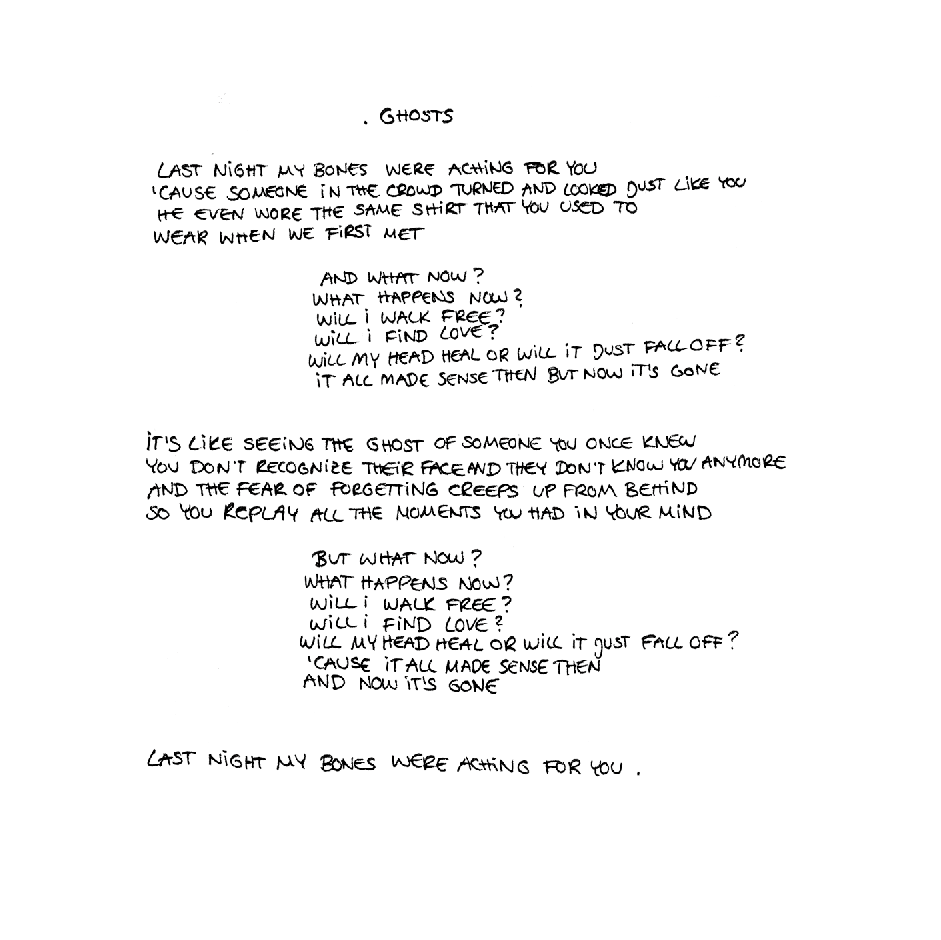 . GHOSTS
LAST NIGHT MY BONES WERE ACHING FOR YOU
'CAUSE SOMEONE IN THE CROWD TURNED AND LOOKED JUST LIKE YOU
HE EVEN WORE THE SAME SHIRT THAT YOU USED TO
WEAR WHEN WE FIRST MET
AND WHAT NOW?
WHAT HAPPENS NOW?
WILL I WALK FREE?
WILL I FIND LOVE?
WILL MY HEAD HEAL OR WILL IT JUST FALL OFF?
IT ALL MADE SENSE THEN BUT NOW IT'S GONE
IT'S LIKE SEEING THE GHOST OF SOMEONE YOU ONCE KNEW
YOU DON'T RECOGNIZE THEIR FACE AND THEY DON'T KNOW YOU ANYMORE
AND THE FEAR OF FORGETTING CREEPS UP FROM BEHIND
SO YOU REPLAY ALL THE MOMENTS YOU HAD IN YOUR MIND
BUT WHAT NOW?
WHAT HAPPENS NOW?
WILL I WALK FREE?
WILL I FIND LOVE?
WILL MY HEAD HEAL OR WILL IT JUST FALL OFF?
'CAUSE IT ALL MADE SENSE THEN
AND NOW IT'S GONE
LAST NIGHT MY BONES WERE ACHING FOR YOU .